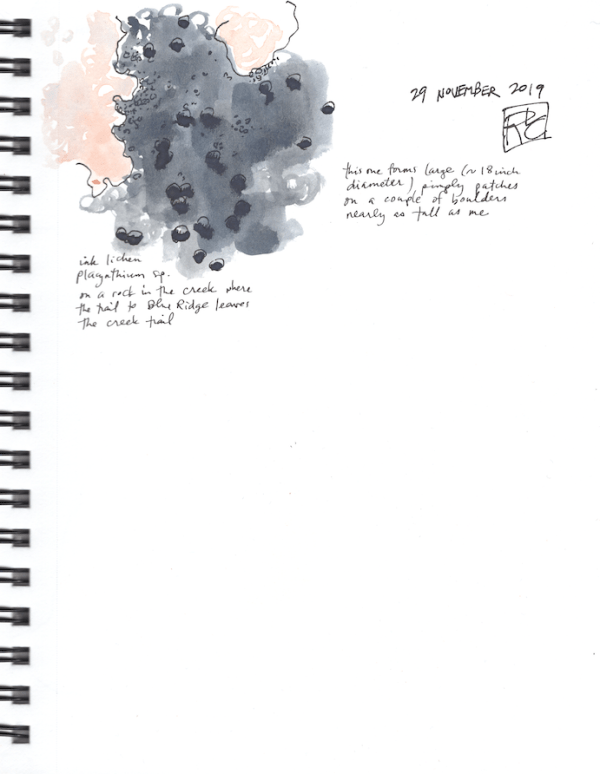 29 NOVEMBER 2019
this one forms large (~18 inch
diameter) pimply patches
on a couple of boulders
nearly as tall as me
ink lichen
placynthium sp.
on a rock in the creek where
the trail to Blue Ridge leaves
the creek trail